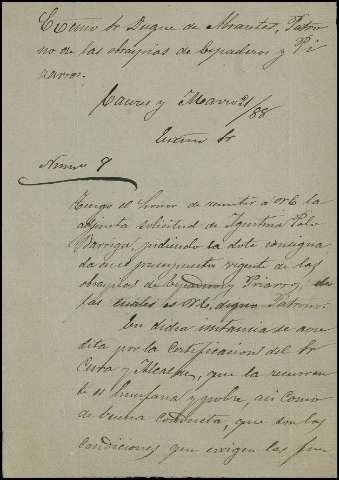 Excmo Sr Duque de Abrantes, Patro
no de las obrapias de Cepaderos y Pi
zarros.
Caceres y Marzo 21/88
Excmo Sr
Numero 9
Tengo el honor de remitir á VE la
adjunta solicitud de Agustina Polo
Barriga, pidiendo la dote consigna
da en el presupuesto vigente de las
obrapias de y Pizarro, de
las cuales es VE, digno Patrono.
En dicha instancia se acre
dita por la certificacion del Sr
Cura y Alcalde, que la recurren
te es huerfana y pobre, asi como
de buena conducta, que son las
condiciones que exigen las fun